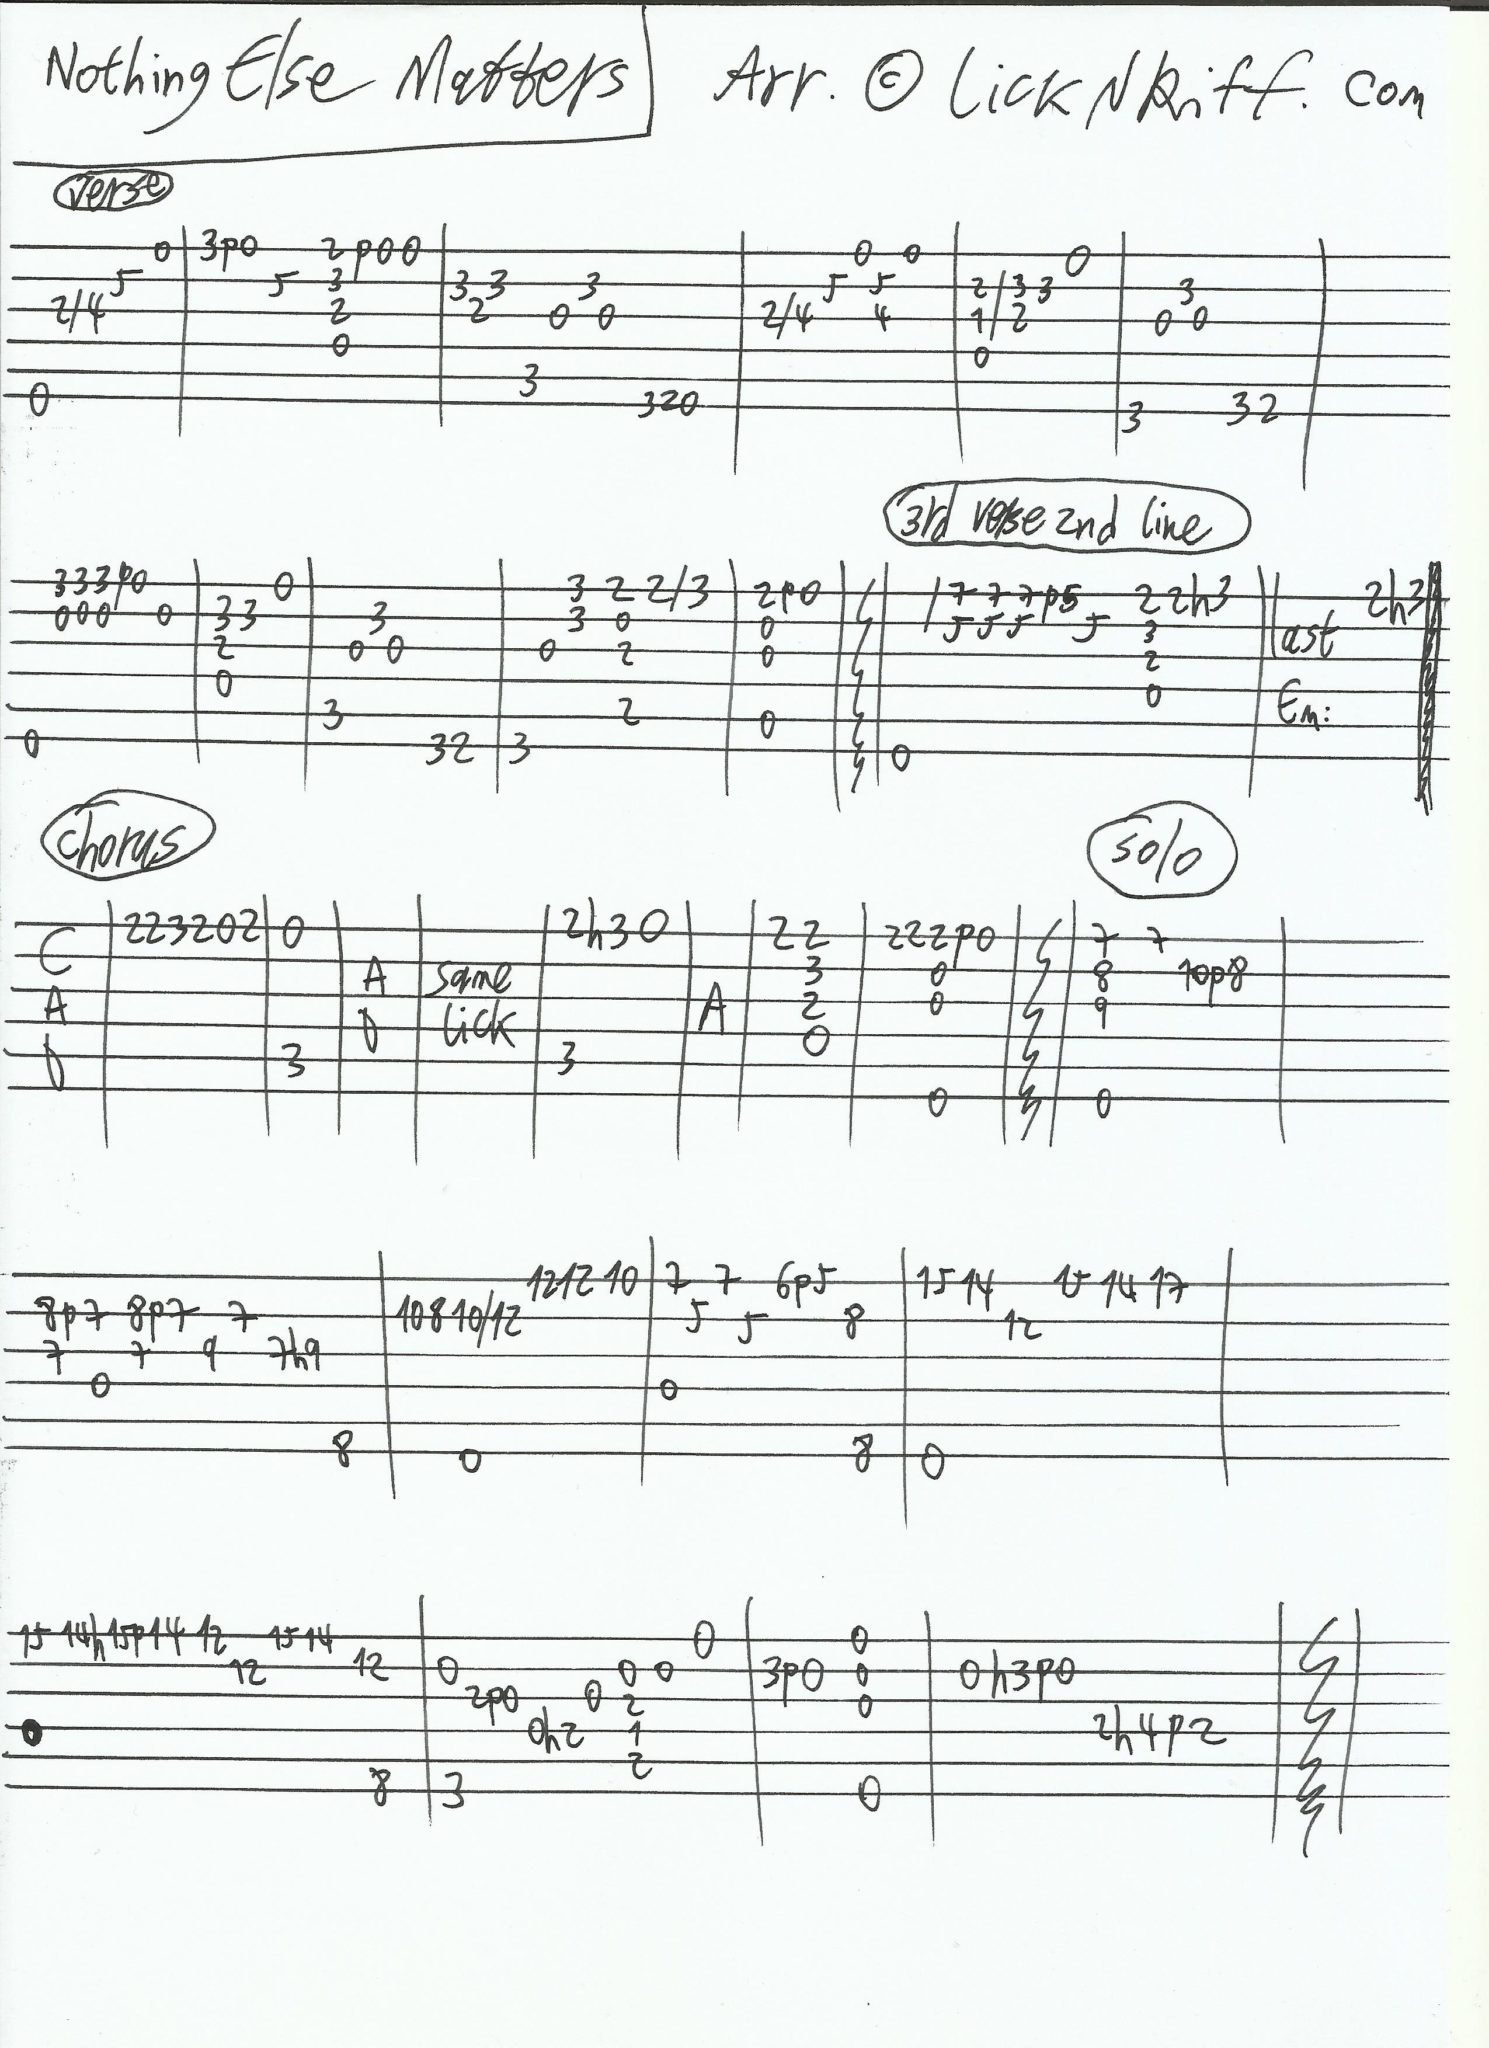 Nothing Else Matters Arr. © LickNRiff.com
verse
0 3p0 2p00 0 0 0
5 5 3 33 3 5 5 2/33 3
2/4 2 2 0 0 2/4 4 1/2 0 0
0 0
3
0 320 3 32
3rd verse 2nd line
333p0 0 3 2 2/3 2p0 /7 7 7p5 2 2h3 2h3
000 0 33 3 3 0 0 5 5 5 5 3 last
2 0 0 0 2 0 2
0 0 Em:
3 2 0
0 32 3 0
chorus solo
C 223202 0 2h30 22 222p0 7 7
A same 3 0 8 10p8
A D lick A 2 0 9
0
D 3 3
0 0
1212 10 7 7 6p5 15 14 15 14 17
8p7 8p7 7 10 8 10/12 5 5 8 12
7 7 9 7h9
0 0
8 0 8 0
15 14h15p14 12 15 14 0 0
12 12 0 0 0 3p0 0 0h3p0
2p0 0 2 0
0h2 1 2h4p2
2
8 3 0